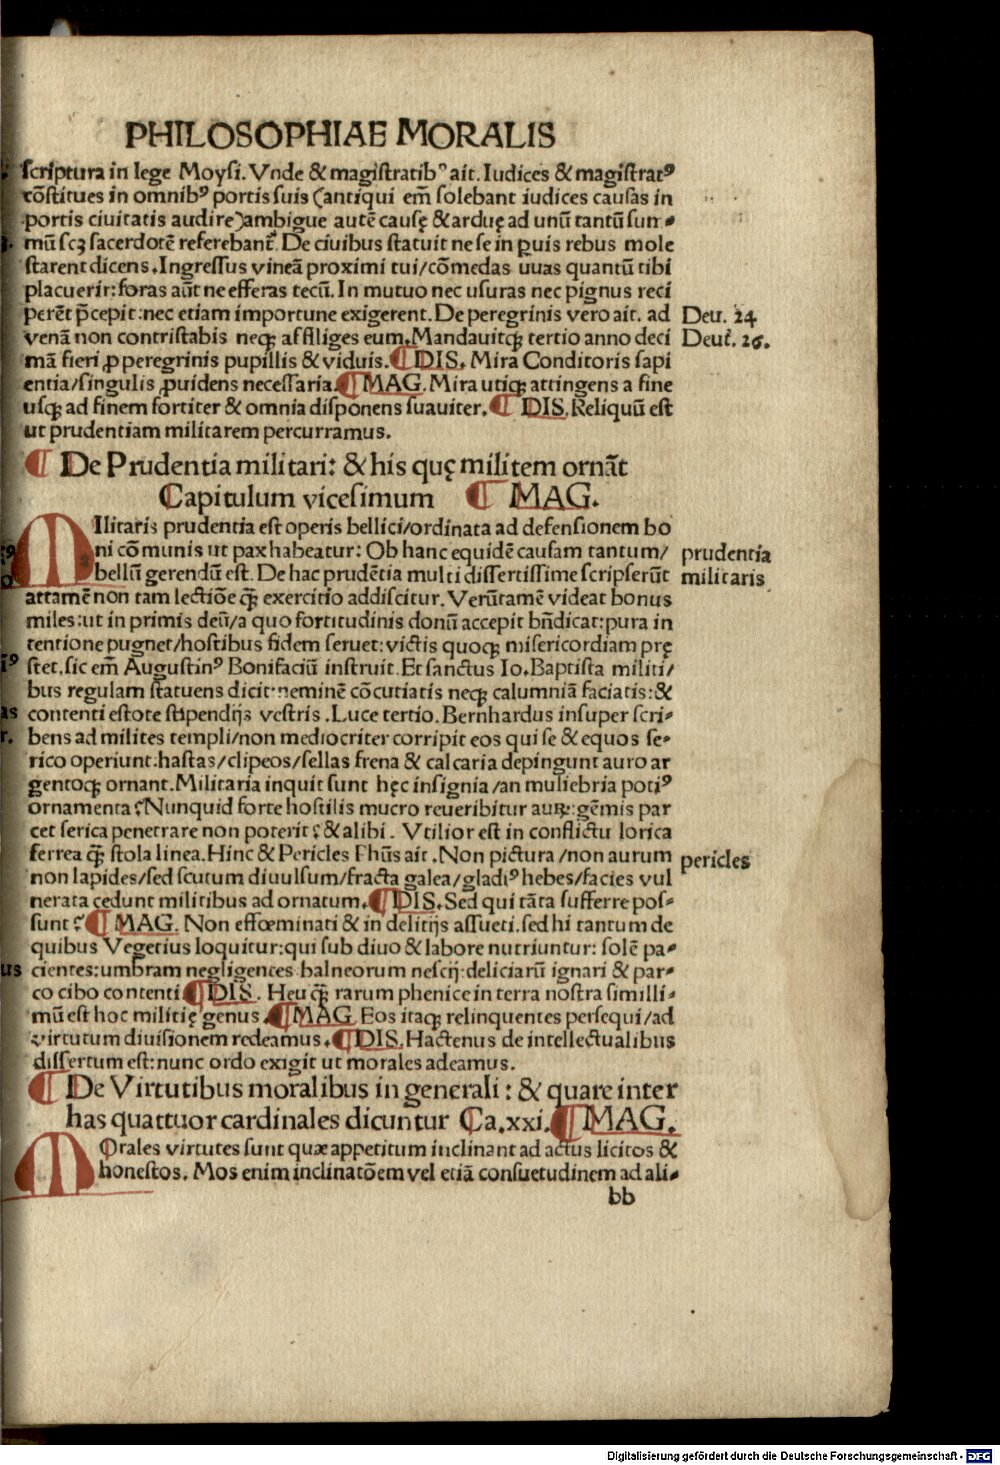 PHILOSOPHIAE MORALIS
scriptura in lege Moysi. Vnde & magistratibꝰ ait. Iudices & magistratꝰ
cōstitues in omnibꝰ portis suis (antiqui em̄ solebant iudices causas in
portis ciuitatis audire) ambigue autē causę & arduę ad unū tantū sum-
mū scꝫ sacerdotē referebant̄. De ciuibus statuit ne se in ꝑuis rebus mole
starent dicens. Ingressus vineā proximi tui/cōmedas uuas quantū tibi
placuerit: foras aūt ne efferas tecū. In mutuo nec usuras nec pignus reci
perēt p̄cepit: nec etiam importune exigerent. De peregrinis vero ait. ad
Deu. 24
venā non contristabis neqꝫ affliges eum. Mandauitqꝫ tertio anno deci
Deut̄. 26.
mā fieri ꝓ peregrinis pupillis & viduis. ¶ DIS. Mira Conditoris sapi
entia/singulis ꝓuidens necessaria. ¶ MAG. Mira utiqꝫ attingens a fine
usqꝫ ad finem fortiter & omnia disponens suauiter. ¶ DIS. Reliquū est
ut prudentiam militarem percurramus.
¶ De Prudentia militari: & his quę militem ornāt
Capitulum vicesimum ¶ MAG.
MIlitaris prudentia est operis bellici/ordinata ad defensionem bo
ni cōmunis ut pax habeatur: Ob hanc equidē causam tantum/
prudentia
bellū gerendū est. De hac prudētia multi dissertissime scripserūt
militaris
attamē non tam lectiōe qꝫ̄ exercitio addiscitur. Verūtamē videat bonus
miles: ut in primis deū/a quo fortitudinis donū accepit bn̄dicat: pura in
tentione pugnet/hostibus fidem seruet: victis quoqꝫ misericordiam prę
stet. sic em̄ Augustinꝰ Bonifaciū instruit. Et sanctus Io. Baptista militi/
bus regulam statuens dicit: neminē cōcutiatis neqꝫ calumniā faciatis: &
contenti estote stipendijs vestris. Luce tertio. Bernhardus insuper scri-
bens ad milites templi/non mediocriter corripit eos qui se & equos se-
rico operiunt: hastas/clipeos/sellas frena & calcaria depingunt auro ar
gentoqꝫ ornant. Militaria inquit sunt hęc insignia/an muliebria potiꝰ
ornamenta? Nunquid forte hostilis mucro reueribitur auꝝ: gēmis par
cet serica penetrare non poterit? & alibi. Vtilior est in conflictu lorica
ferrea qꝫ̄ stola linea. Hinc & Pericles Phūs ait. Non pictura/non aurum
pericles
non lapides/sed scutum diuulsum/fracta galea/gladiꝰ hebes/facies vul
nerata cedunt militibus ad ornatum. ¶ DIS. Sed qui tāta sufferre pos-
sunt? ¶ MAG. Non effœminati & in delitijs assueti. sed hi tantum de
quibus Vegetius loquitur: qui sub diuo & labore nutriuntur: solē pa-
cientes: umbram negligentes balneorum nescij: deliciarū ignari & par-
co cibo contenti ¶ DIS. Heu qꝫ̄ rarum phenice in terra nostra simili-
mū est hoc militię genus. ¶ MAG. Eos itaqꝫ relinquentes persequi/ad
virtutum diuisionem redeamus. ¶ DIS. Hactenus de intellectualibus
dissertum est: nunc ordo exigit ut morales adeamus.
¶ De Virtutibus moralibus in generali: & quare inter
has quattuor cardinales dicuntur Ca. xxi. ¶ MAG.
MOrales virtutes sunt quæ appetitum inclinant ad actus licitos &
honestos. Mos enim inclinatōem vel etiā consuetudinem ad ali-
bb
Digitalisierung gefördert durch die Deutsche Forschungsgemeinschaft - DFG